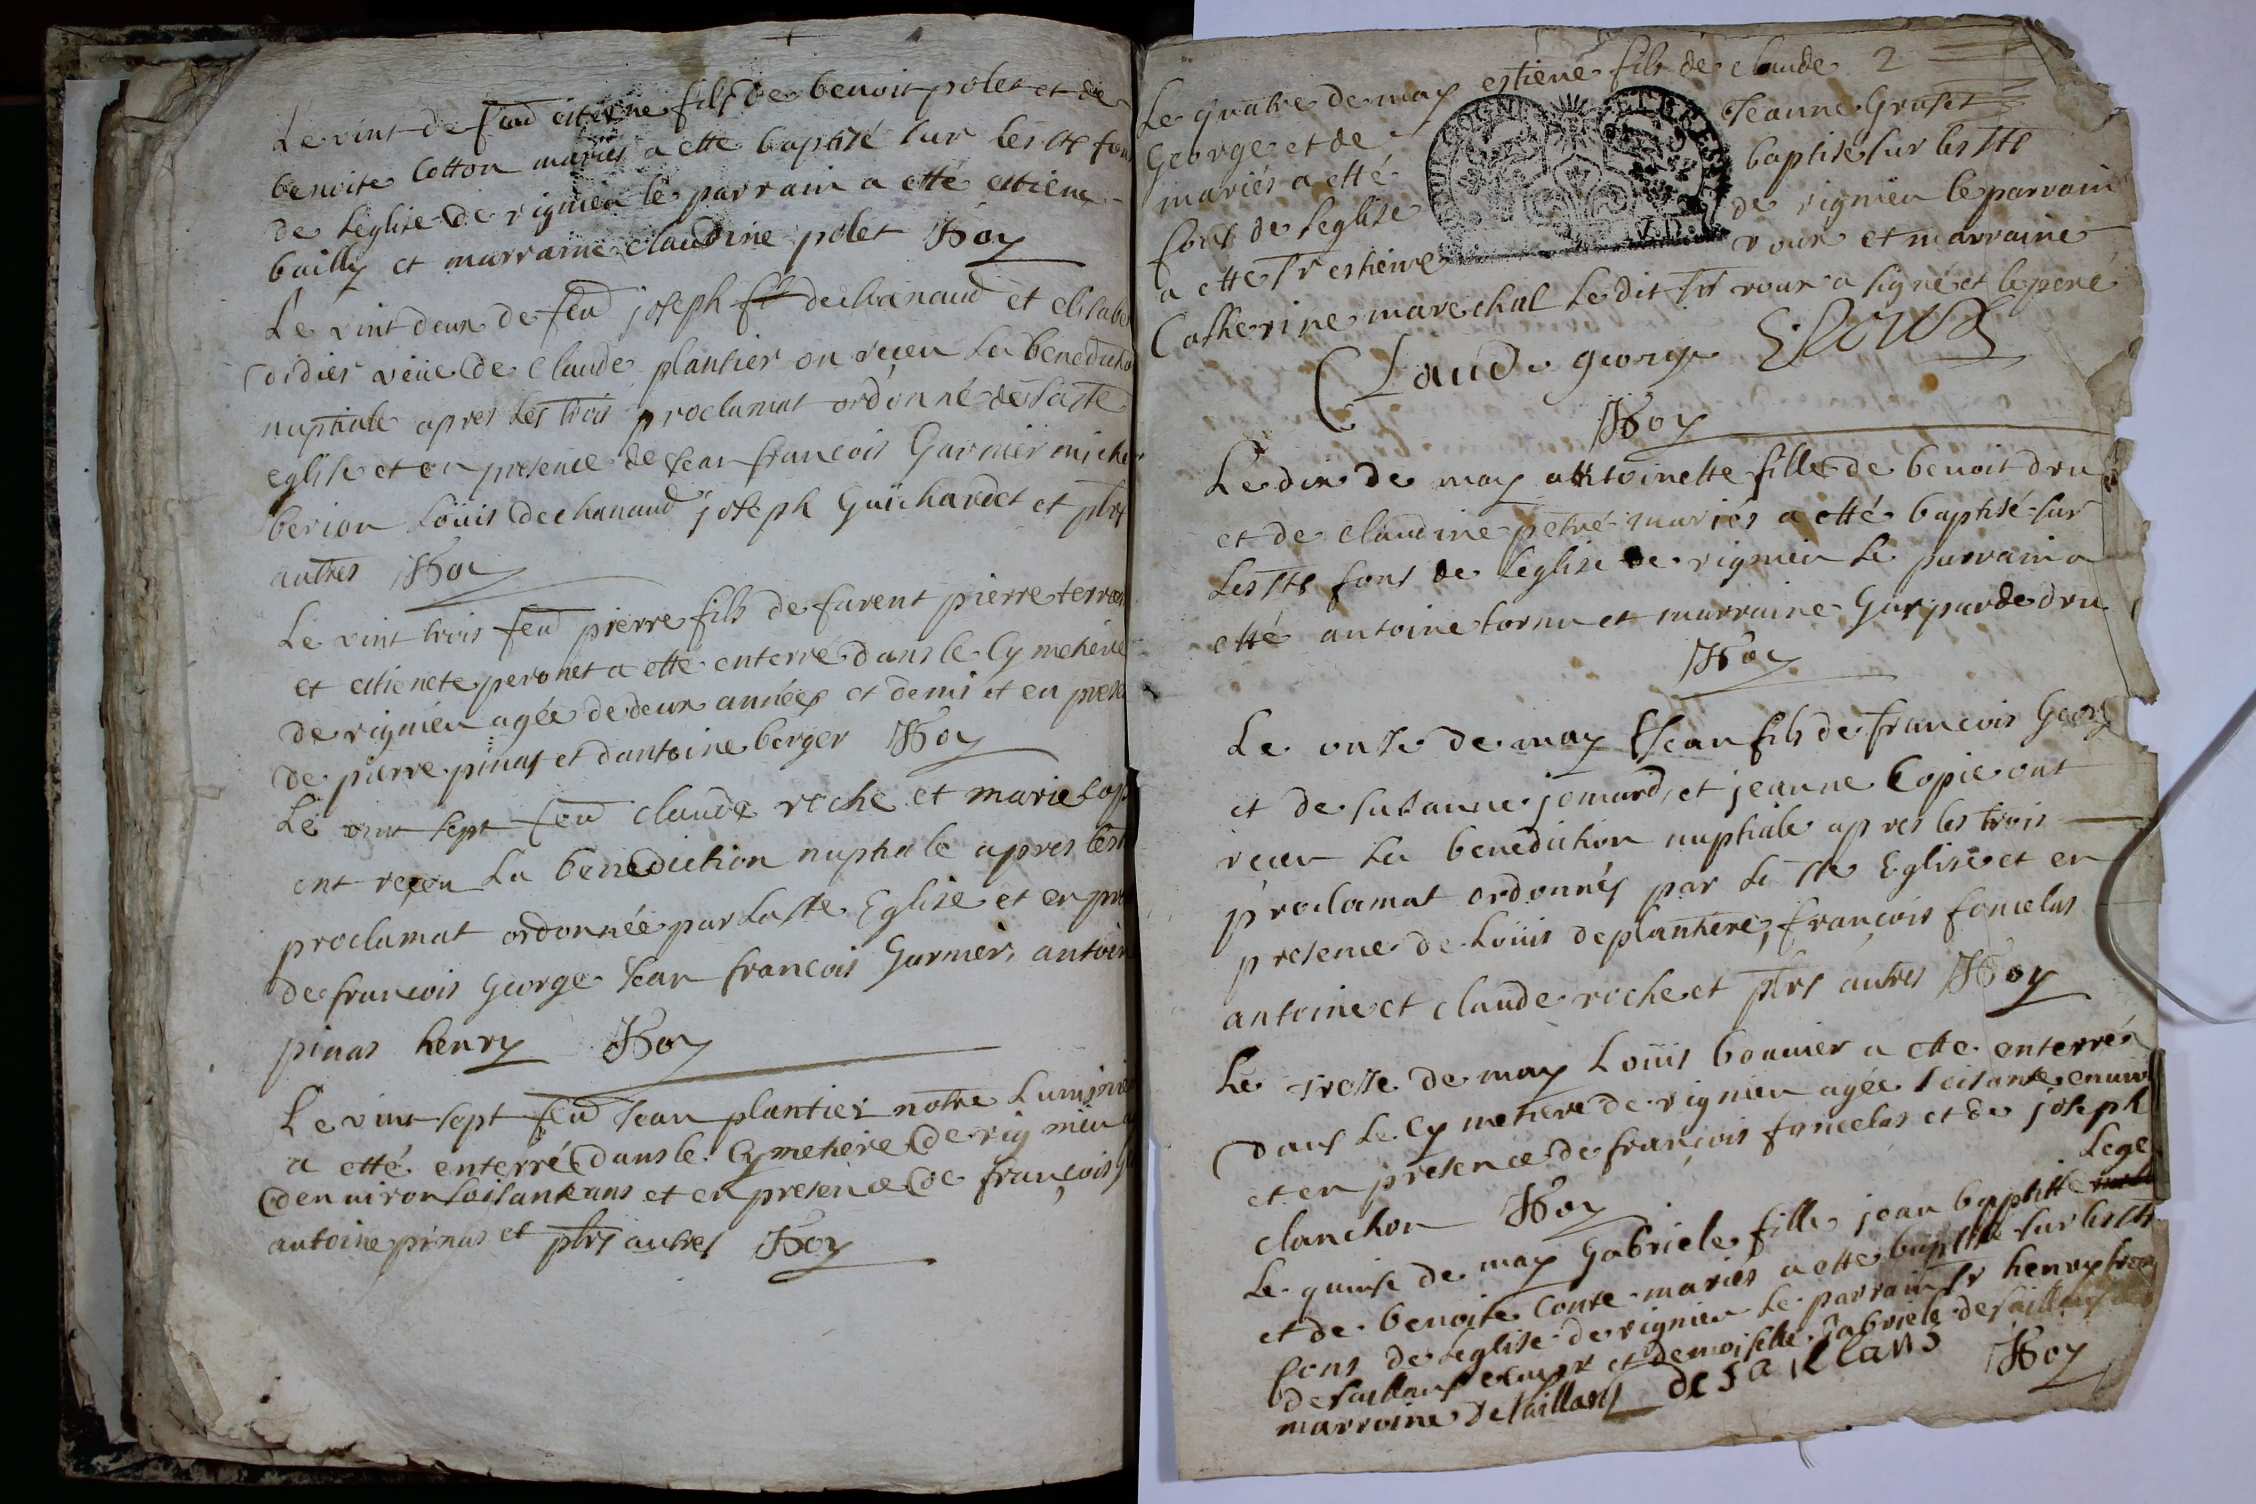 Le vint de feu estiene fils de benoit polet et de
benoite Cotton mariés a etté baptisé sur les sts fon
de leglise de rignieu le parrain a etté estiene
bailly et marraine claudine polet Roy
Le vint deux de feu joseph dechanaud et elisabe
didier veüe de claude plantier on reçeu La benedictio
nuptiale apres les trois proclamat ordonné de la ste
eglise et en presence de Jean françois Garnier miche
berion Loüis dechanaud joseph Guichardet et plrs
autres Roy
Le vint trois feu pierre fils de furent pierre terra
et estienete peronet a etté enterré dans le Cymetiere
de rignieu agée de deux années et demi et en prese
de pierre pinas et dantoine berger Roy
Le vint sept feu claude roche et marie Cop
ont reçeu La benediction nuptiale apres les t
proclamat ordonnée par La ste Eglise et en pre
de françois George Jean françois Garnier, antoin
pinas henry Roy
Le vint sept feu Jean plantier notre Luminie
a etté enterré dans le Cymetiere de rignieu a
denuiron soisante ans et en presence de françois g
antoine pinas et plrs autres Roy
Le quatre de may estiene fils de claude 2
George et de Jeanne Gruset
mariés a etté baptisé sur les sts
fons de leglise de rignieu le parrain
a etté sr estiene roux et marraine
Catherine marechal Le dit sr roux a signé et le pere
Claude george E Roux
Roy
Le dix de may antoinette fille de benoit dru
et de claudine petré mariés a etté baptisé sur
Les sts fons de leglise de rignieu Le parrain a
etté antoine tornu et marraine Gasparde dru
Roy
Le onse de may Jean fils de françois Georg
et de susanne jomard, et jeanne Copie ont
reçeu La benediction nuptiale apres les trois
proclamat ordonnés par La ste Eglise et en
presence de Loüis deplantiere, françois foncelas
antoine et claude roche et plrs autres Roy
Le tresse de may Loüis bonnier a etté enterré
Dans Le Cymetiere de rignieu agée soisante enuir
et en presence de françois foncelas et de joseph
clanchon Roy
Lege
Le quinse de may Gabriele fille jean baptiste
et de benoite Conte mariés a etté baptisé sur les sts
fons de leglise de rignieu Le parrain sr henry fran
desaillans et demoiselle Gabriele desaillans
marroine desaillans desaillans Roy